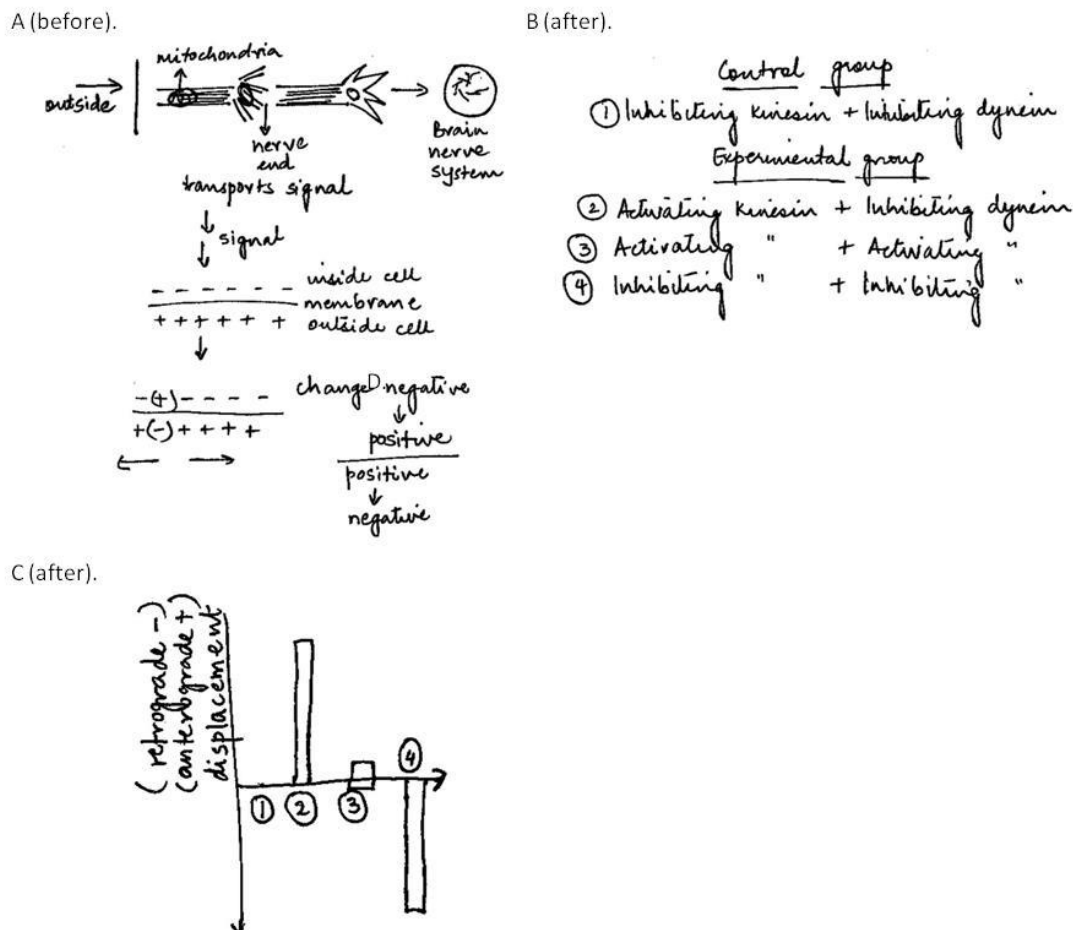 A (before).
mitochondria
outside
nerve
end
transports signal
Brain
nerve
system
signal
- - - - - - inside cell
membrane
+ + + + + + outside cell
-(+)- - - -
+(-)+ + + +
changeD.negative
positive
positive
negative
B (after).
Control group
① Inhibiting kinesin + Inhibiting dynein
Experimental group
② Activating kinesin + Inhibiting dynein
③ Activating " + Activating "
④ Inhibiting " + Inhibiting "
C (after).
(retrograde -)
(anterograde +)
displacement
① ② ③ ④